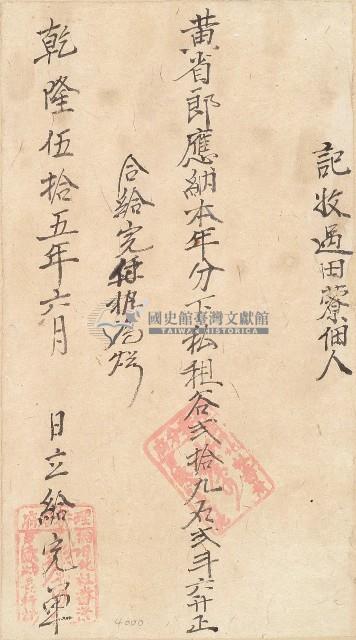 記收過田藔佃人
黃省郎應納本年分下私租谷弍拾九石弍斗六升正
合給完付執為炤
乾隆伍拾五年六月 日立給完單
國史館臺灣文獻館
TAIWAN HISTORICA
4000